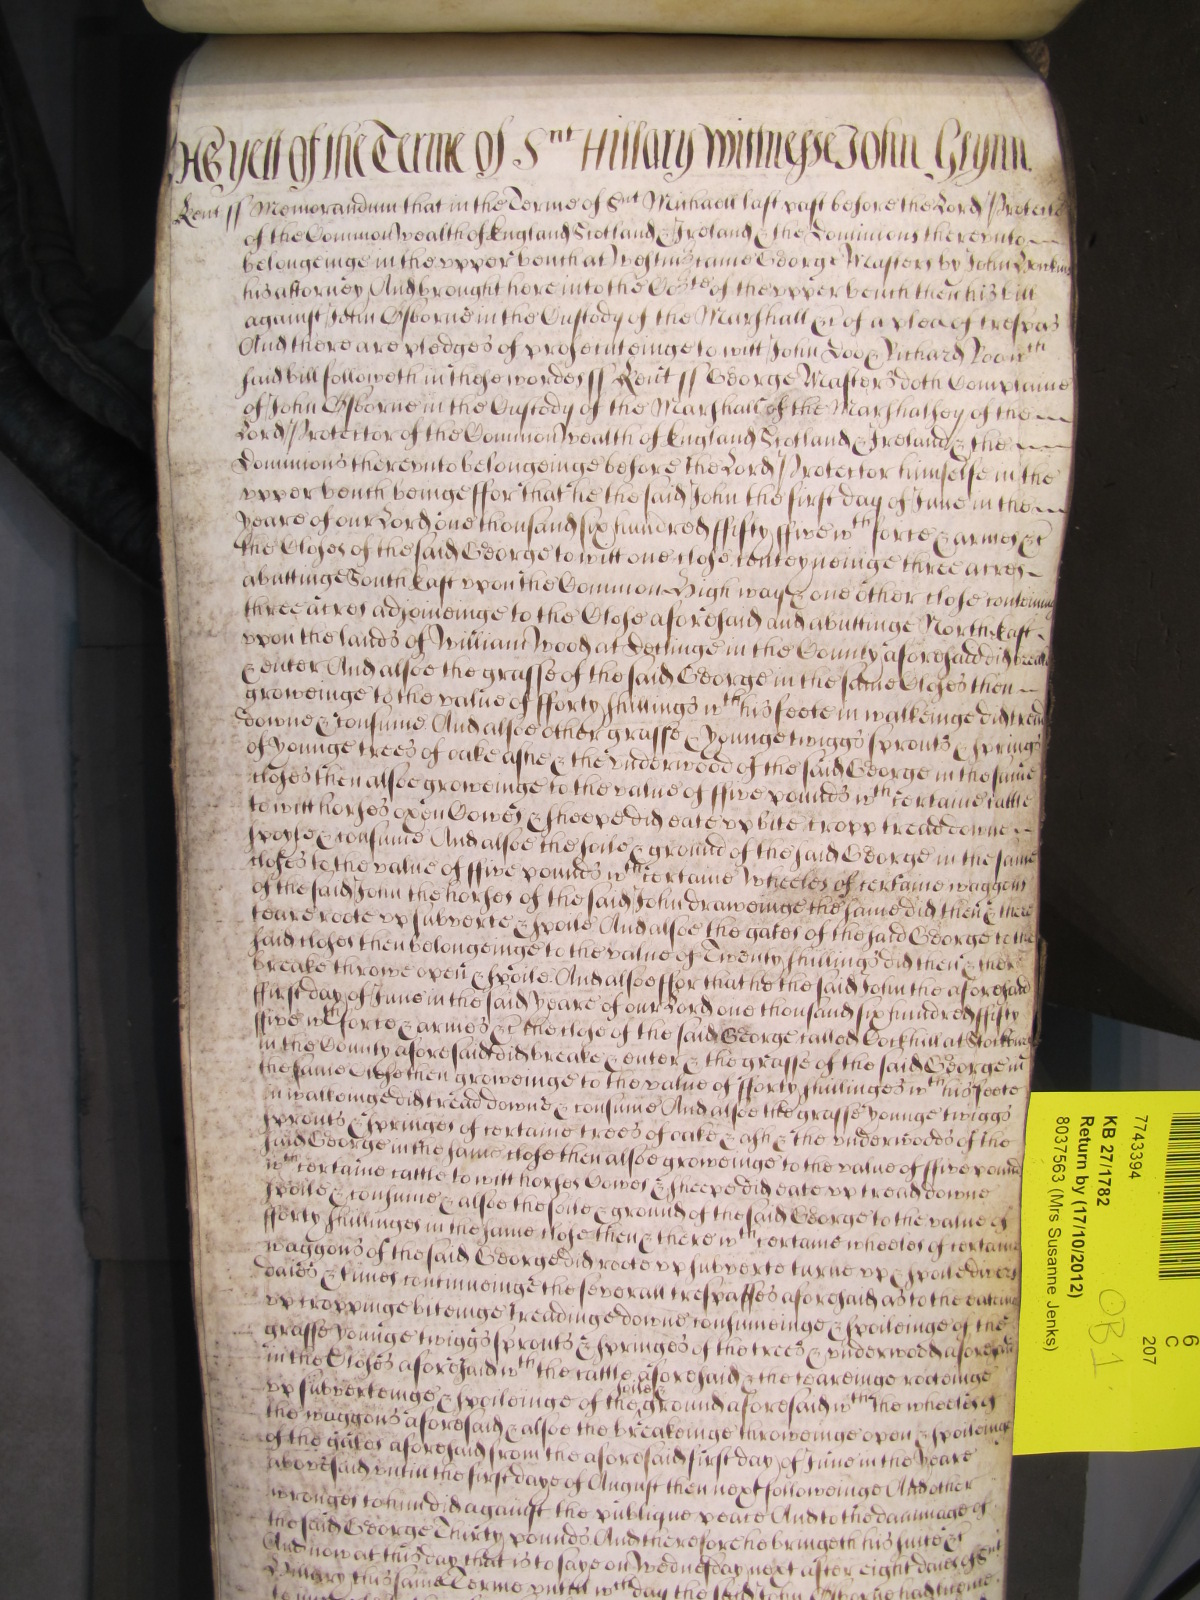 As yett of the Terme of Snt Hillary witnesse John Glynn.
Kent ss Memorandum that in the Terme of Snt Michaell last past before the Lord Protector
of the Common wealth of England Scotland & Ireland & the Dominions thereunto
belongeinge in the upper bench at Westmr came George Masters by John
his attorney And brought here into the Cort of the upper bench then his bill
against John Osborne in the Custody of the Marshall &c of a plea of trespas
And there are pledges of prosecuteinge to witt John Doo & Richard Roo wch
said bill followeth in these wordes ss Kent ss George Masters doth Complaine
of John Osborne in the Custody of the Marshall of the Marshalsey of the
Lord Protector of the Common wealth of England Scotland & Ireland & the
Dominions thereunto belongeinge before the Lord Protector himselfe in the
upper bench beinge ffor that he the said John the first day of June in the
yeare of our Lord one thousand six hundred ffifty ffive wth force & armes &c
the Closes of the said George to witt one close conteyneinge three acres
abuttinge South East upon the Common High way & one other close conteining
three acres adjoineinge to the Close aforesaid and abuttinge North East
upon the lands of William Wood at Detlinge in the County aforesaid did breake
& enter And alsoe the grasse of the said George in the same Closes then
groweinge to the value of fforty shillings wth his feete in walkeinge did tread
downe & consume And alsoe other grasse & younge twiggs sprouts & springs
of younge trees of oake ashe & the underwood of the said George in the same
closes then alsoe groweinge to the value of ffive pounds wth certaine cattle
to witt horses oxen Cowes & sheepe did eate up bite cropp tread downe
spoyle & consume And alsoe the soile & ground of the said George in the same
closes to the value of ffive pounds wth certaine wheeles of certaine waggons
of the said John the horses of the said John draweinge the same did then & there
teare roote up subverte & spoile And alsoe the gates of the said George to the
said closes then belongeinge to the value of Twenty shillings did then & there
breake throwe open & spoile. And alsoe ffor that he the said John the aforesaid
ffirst day of June in the said yeare of our Lord one thousand six hundred ffifty
ffive wth force & armes &c the close of the said George called Cockhill at
in the County aforesaid did breake & enter & the grasse of the said George in
the same Close then groweinge to the value of fforty shillinges wth his feete
in walkeinge did tread downe & consume And alsoe like grasse younge twiggs
sprouts & springes of certaine trees of oake & ash & the underwoods of the
said George in the same close then alsoe groweinge to the value of ffive pound
wth certaine cattle to witt horses Cowes & sheepe did eate upp tread downe
spoile & consume & alsoe the soile & ground of the said George to the value of
fforty shillinges in the same close then & there wth certaine wheeles of certaine
waggons of the said George did roote up subverte turne up & spoile divers
daies & times continueinge the severall trespasses aforesaid as to the eateing
up croppinge biteinge treadinge downe consumeinge & spoileinge of the
grasse younge twiggs sprouts & springes of the trees & underwood aforesaid
in the Closes aforesaid wth the cattle aforesaid & the teareinge rooteinge
up subverteinge & spoileinge of the soile & ground aforesaid wth the wheeles of
the waggons aforesaid & alsoe the breakeinge throweinge open & spoileinge
of the gates aforesaid from the aforesaid first day of June in the yeare
abovesaid untill the first daye of August then next followeinge And other
wronges to him did against the publique peace And to the dammage of
the said George Thirty pounds And therefore he bringeth his suite &c
And now at this day that is to saye on Wednesday next after eight daies of Snt
Hillary this same Terme untill wch day the said John Osborne had licence
7743394
KB 27/1782
Return by (17/10/2012)
8037563 (Mrs Susanne Jenks)
6
C
207
OB 1